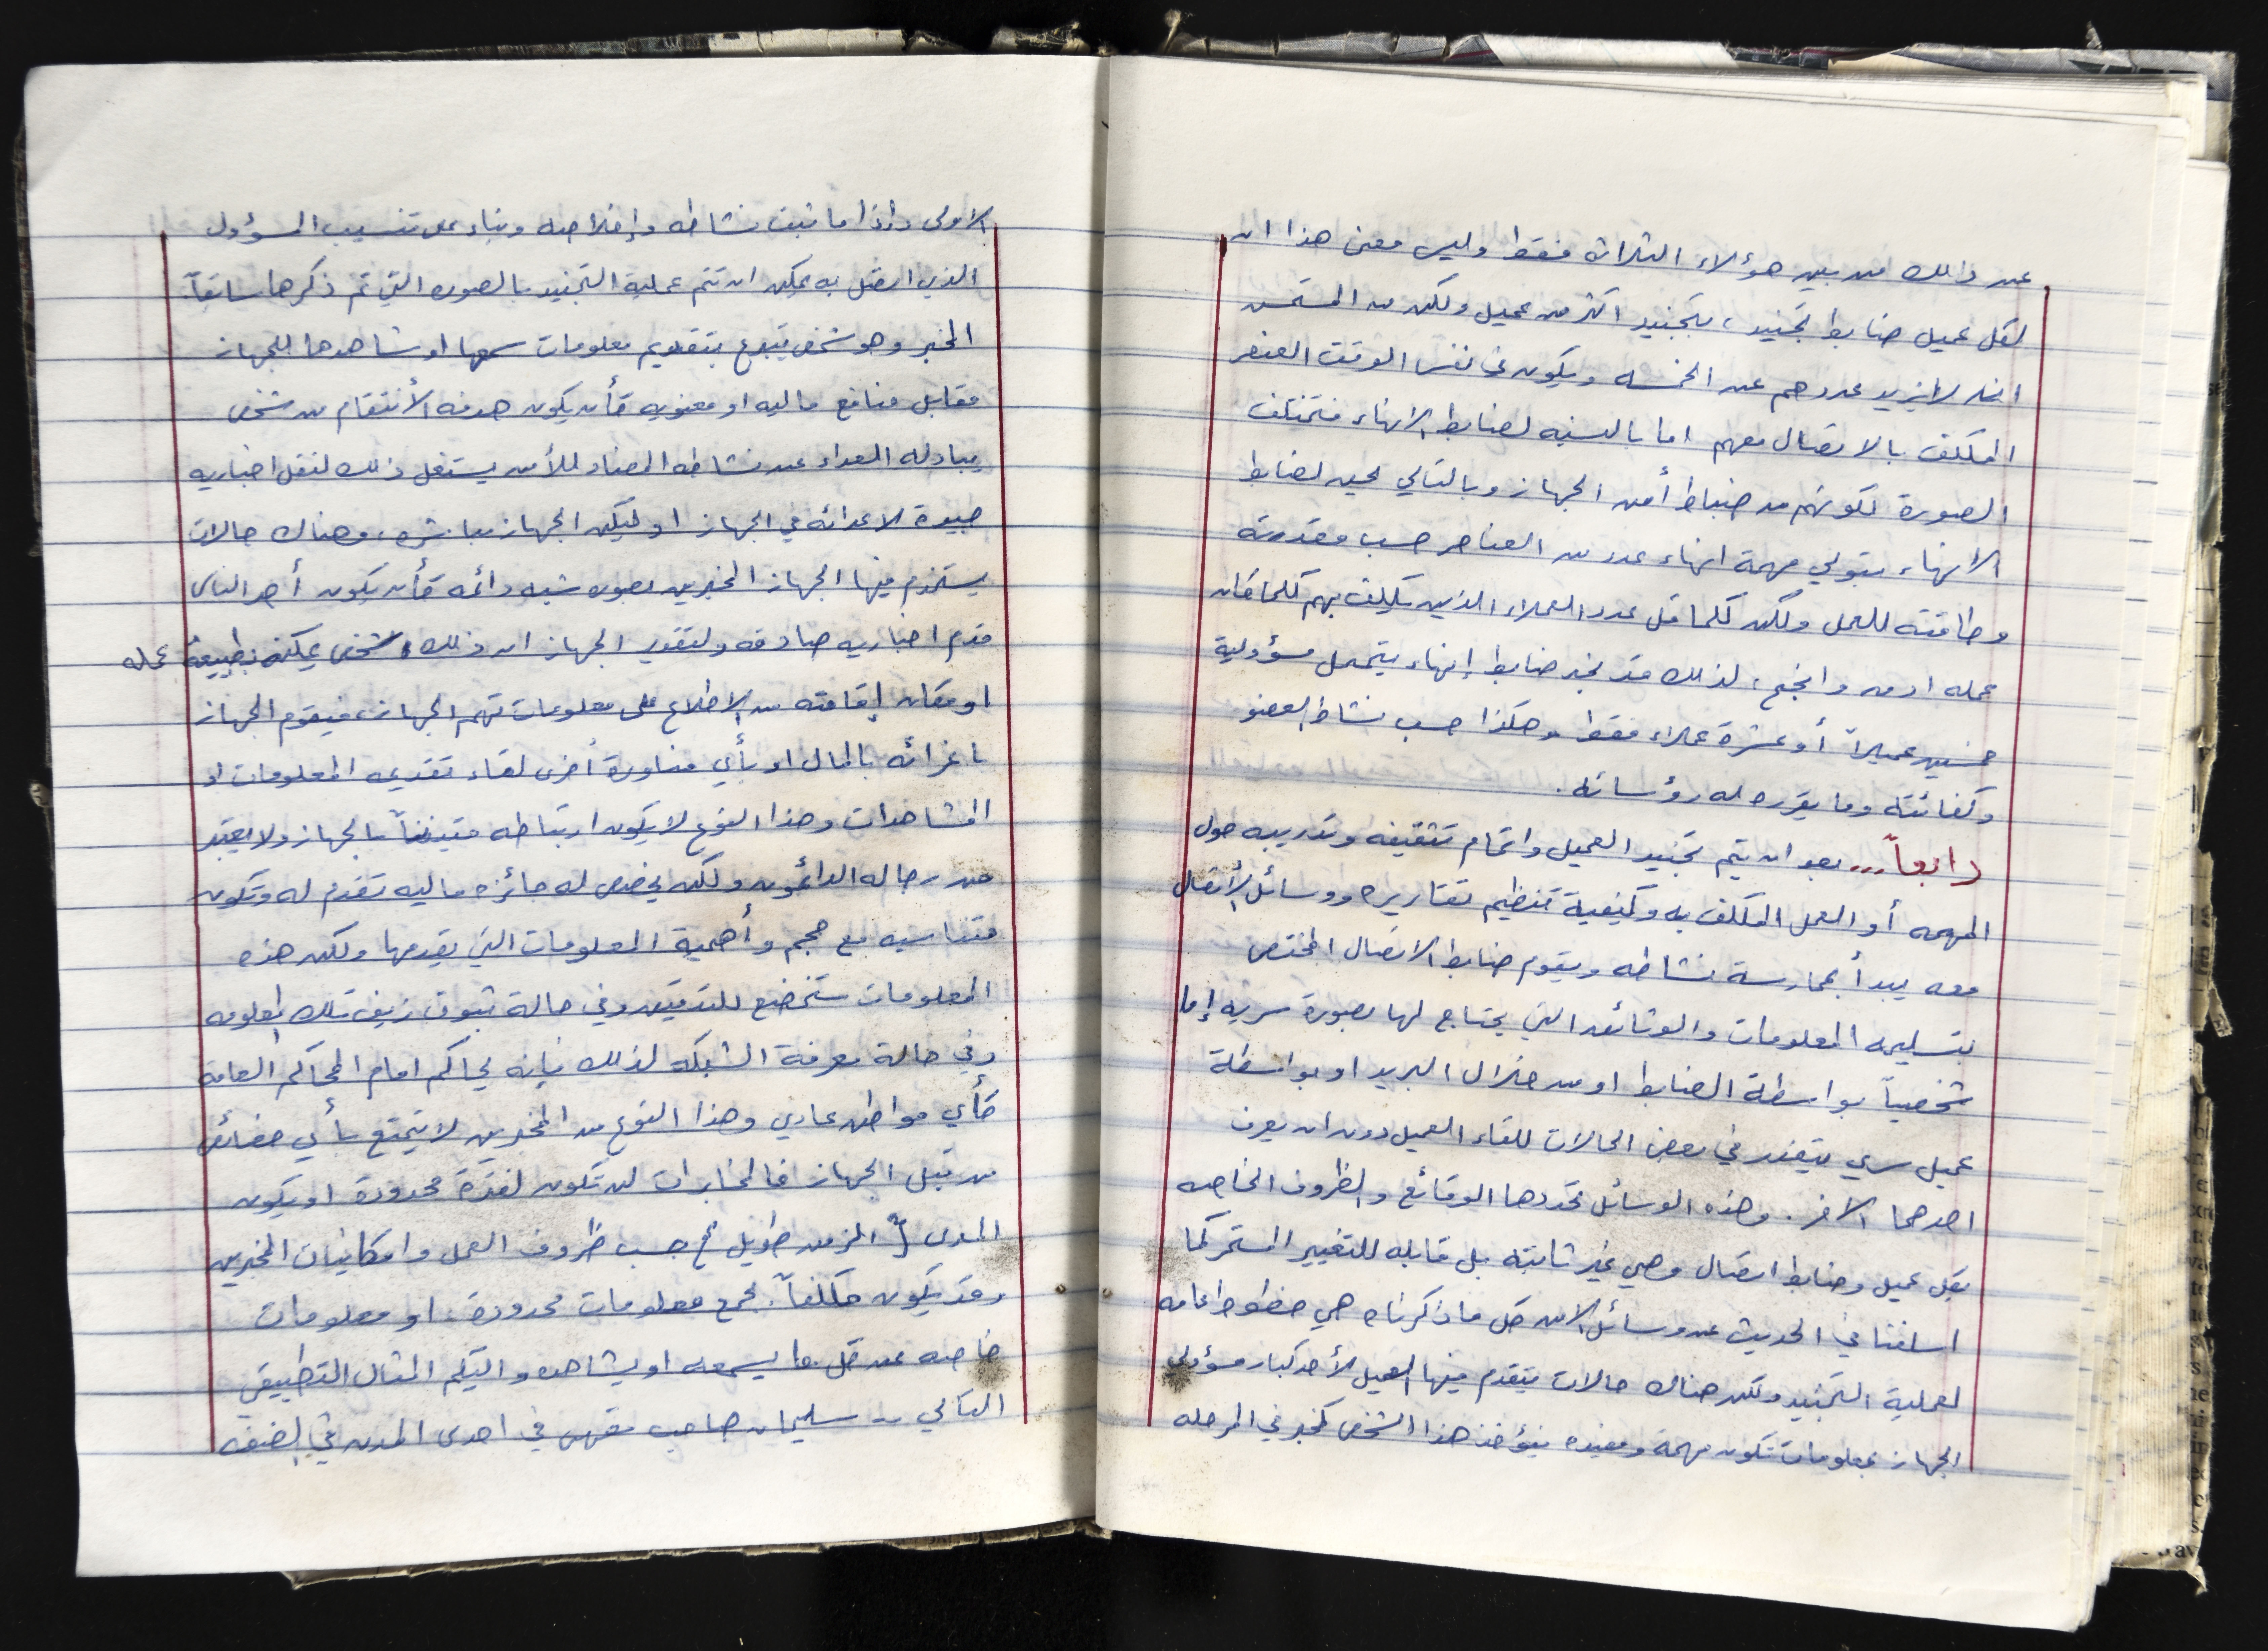 عن ذالك من بين هؤلاء الثلاثه فقط وليس معنى هذا ان
لكل عميل ضابط تجنيد، بتجنيد اكثر من عميل ولكن من المستحسن
انه لا يزيد عددهم عن الخمسه ويكون في نفس الوقت العنصر
المكلف بالاتصال معهم اما بالنسبه لضابط الانهاء فتختلف
الصورة لكونهم من ضباط أمن الجهاز وبالتالي لضابط
الانهاء يتولى مهمة انهاء عدد من العناصر حسب مقدرته
وطاقته للعمل ولكن كلما قل عدد العملاء الذين يكلف بهم كلما كان
عمله ادق وانجح، لذلك قد نجد ضابط إنهاء يتحمل مسؤولية
خمسين عميلاً أو عشرة عملاء فقط وهكذا حسب نشاط العضو
وكفائته وما يقرره له رؤسائه.
رابعاً... بعد ان يتم تجنيد العميل واتمام تثقيفه وتدريبه حول
المهمه أو العمل المكلف به وكيفية تنظيم تقاريره ووسائل الأتصال
معه يبدأ بممارسة نشاطه ويقوم ضابط الاتصال المختص
بتسليمه المعلومات والوثائق التي يحتاج لها بصورة سريه إما
شخصياً بواسطة الضابط او من خلال البريد او بواسطة
عميل سري في بعض الحالات للقاء العميل دون ان يعرف
احدهما الاخر. وهذه الوسائل تحددها الوقائع والظروف الخاصه
بكل عميل وضابط اتصال وهي غير ثابته بل قابله للتغيير المستمر كما
اسلفنا في الحديث عن وسائل الامن كل ما ذكرناه هي خطوط عامه
لعملية التجنيد ولكن هناك حالات يتقدم فيها العميل لأحد كبار مسؤولي
الجهاز بمعلومات تكون مهمة ومفيده فيؤخذ هذا الشخص كمخبر في المرحله
الاولى واذا ما ثبت نشاطه وإخلاصه وبناء على تنسيب المسؤول
الذي اتصل به يمكن ان تتم عملية التجنيد بالصوره التي تم ذكرها سابقاً.
المخبر وهو شخص يتبرع بتقديم معلومات سمعها او شاهدها للجهاز
مقابل منافع ماليه او معنويه كأن يكون هدفه الأنتقام من شخص
يبادله العداء عن نشاطه المضاد للأمن يستغل ذلك لنقل اخباريه
جيدة لاعدائه في الجهاز او الجهاز مباشره، وهناك حالات
يستخدم فيها الجهاز المخبرين بصوره شبه دائمه كأن يكون أحد الناس
قدم اخباريه صادقه ولتقدير الجهاز ان ذلك الشخص يمكنه بطبيعة عمله
او مكان إقامته من الاطلاع على معلومات تهم الجهاز، فيقوم الجهاز
باغرائه بالمال او بأي مناورة أخرى لقاء تقديمه المعلومات او
المشاهدات وهذا النوع لا يكون ارتباطه متيناً بالجهاز ولا يعتبر
من رجاله الدائمون ولكن يخصص له جائزه ماليه تقدم له وتكون
متناسبه مع حجم وأهمية المعلومات التي يقدمها ولكن هذه
المعلومات ستخضع للتدقيق وفي حالة ثبوت زيف تلك المعلومه
وفي حالة معرفة الشبكه لذلك فإنه يحاكم امام المحاكم العامه
كأي مواطن عادي وهذا النوع من المخبرين لا يتمتع بأي خصائص
من قبل الجهاز فالمخابرات لن تكون لفترة محدودة او يكون
المدى الزمن طويل حسب ظروف العمل وامكانيات المخبرين
وقد يكون مكلفاً بجمع معلومات محدودة، او معلومات
خاصه عن كل ما يسمعه او يشاهده واليكم المثال التطبيقي
التالي :- سليمان صاحب مقهى في احدى المدن في الضفه